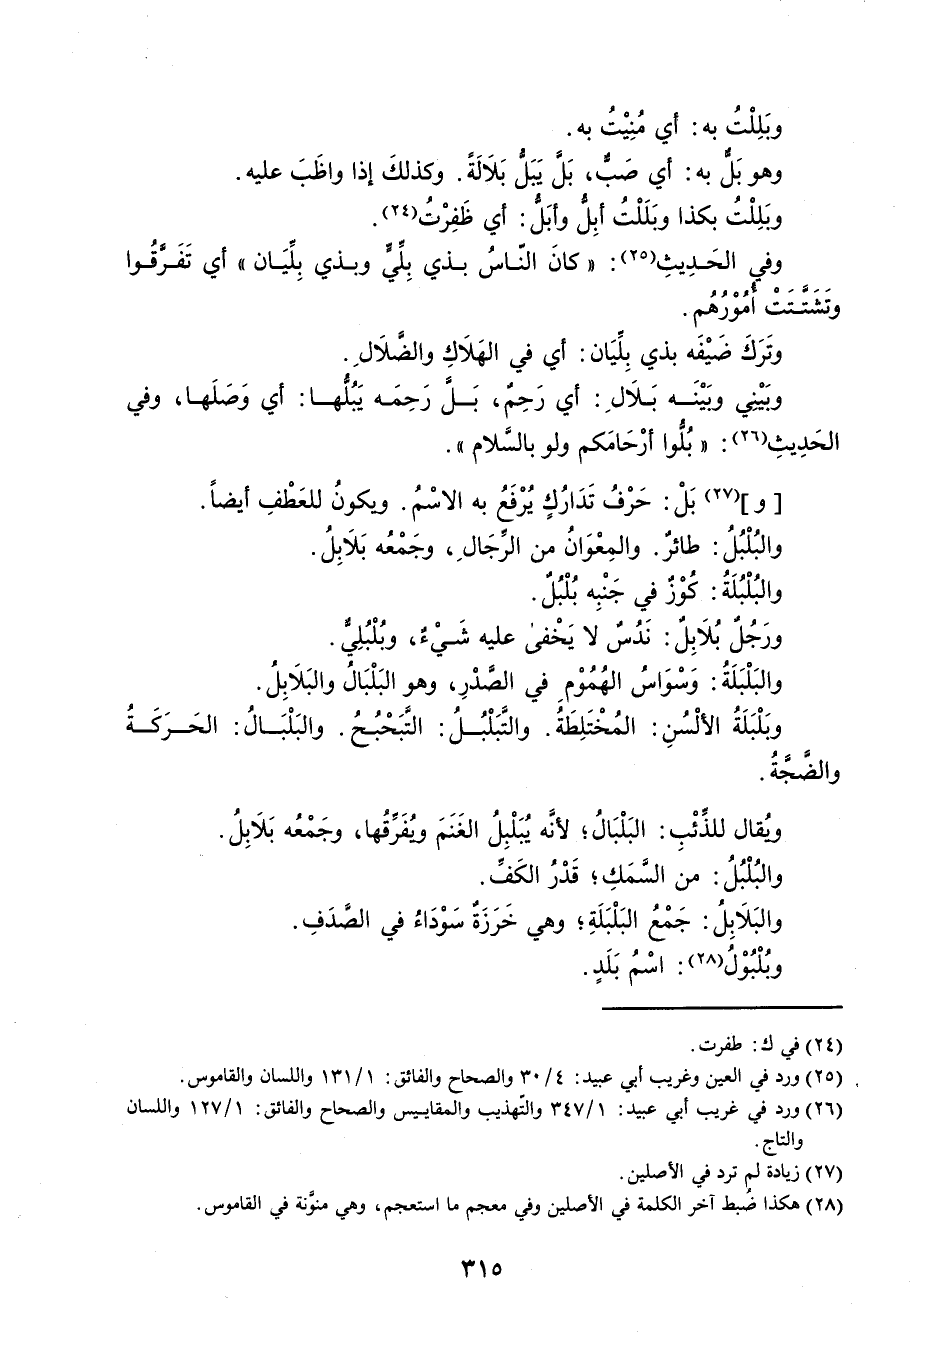 وبَلِلْتُ به: أي مُنِيْتُ به.
وهو بَلٌّ به: أي صَبٌّ، بَلَّ يَبَلُّ بَلَالَةً. وكذلكَ إذا واظَبَ عليه.
وبَلِلْتُ بكذا وبَلَلْتُ أبِلُّ وأبَلُّ: أي ظَفِرْتُ(٢٤).
وفي الحَدِيثِ(٢٥): « كانَ النّاسُ بذي بِلِّيٍّ وبذي بِلِّيَان » أي تَفَرَّقُوا
وتَشَتَّتَتْ أُمُوْرُهُم.
وتَرَكَ ضَيْفَه بذي بِلِّيَان: أي في الهَلَاكِ والضَّلَالِ.
وبَيْنِي وبَيْنَه بَلَالِ: أي رَحِمٌ، بَلَّ رَحِمَه يَبُلُّها: أي وَصَلَها، وفي
الحَدِيثِ(٢٦): « بُلُّوا أرْحَامَكم ولو بالسَّلام ».
[ و ](٢٧) بَلْ: حَرْفُ تَدَارُكٍ يُرْفَعُ به الاسْمُ. ويكونُ للعَطْفِ أيضاً.
والبُلْبُلُ: طائرٌ. والمِعْوَانُ من الرِّجَالِ، وجَمْعُه بَلَابِلُ.
والبُلْبُلَةُ: كُوْزٌ في جَنْبِه بُلْبُلٌ.
ورَجُلٌ بُلَابِلٌ: نَدُسٌ لا يَخْفىٰ عليه شَيْءٌ، وبُلْبُلِيٌّ.
والبَلْبَلَةُ: وَسْوَاسُ الهُمُوْمِ في الصَّدْرِ، وهو البَلْبَالُ والبَلَابِلُ.
وبَلْبَلَةُ الألْسُنِ: المُخْتَلِطَةُ. والتَّبَلْبُلُ: التَّبَحْبُحُ. والبَلْبَالُ: الحَرَكَةُ
والضَّجَّةُ.
ويُقال للذِّئْبِ: البَلْبَالُ؛ لأنَّه يُبَلْبِلُ الغَنَمَ ويُفَرِّقُها، وجَمْعُه بَلَابِلُ.
والبُلْبُلُ: من السَّمَكِ؛ قَدْرُ الكَفِّ.
والبَلَابِلُ: جَمْعُ البَلْبَلَةِ؛ وهي خَرَزَةٌ سَوْدَاءُ في الصَّدَفِ.
وبُلْبُوْلُ(٢٨): اسْمُ بَلَدٍ.
(٢٤) في ك: طفرت.
(٢٥) ورد في العين وغريب أبي عبيد: ٣٠/٤ والصحاح والفائق: ١٣١/١ واللسان والقاموس.
(٢٦) ورد في غريب أبي عبيد: ٣٤٧/١ والتّهذيب والمقاييس والصحاح والفائق: ١٢٧/١ واللسان
والتاج.
(٢٧) زيادة لم ترد في الأصلين.
(٢٨) هكذا ضُبط آخر الكلمة في الأصلين وفي معجم ما استعجم، وهي منوَّنة في القاموس.
٣١٥